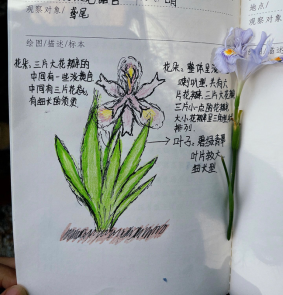 观察对象/
鸢尾
地点/
观察对象/
绘图/描述/标本
花朵,三片大花瓣的
中间有一些淡黄色
中间有三片花
有细长的
花朵,整体呈
喇叭型,共有六
片花瓣,三片大花瓣
三片小点的花瓣
大小花瓣呈三角
排列.
叶子,
叶片较大,
细长型